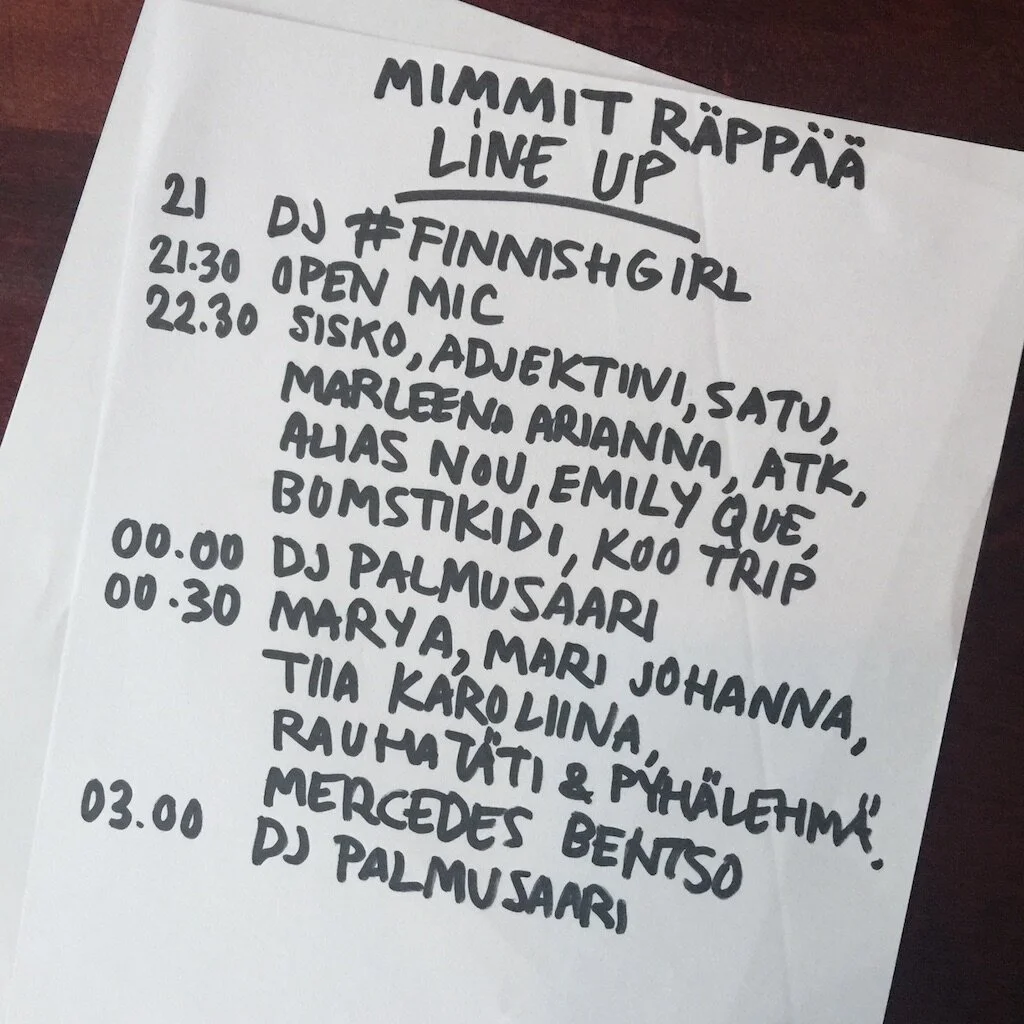 MIMMIT RÄPPÄÄ
LINE UP
21 DJ #FINNISHGIRL
21.30 OPEN MIC
22.30 SISKO, ADJEKTIIVI, SATU,
MARLEENA ARIANNA, ATK,
ALIAS NOU, EMILY QUE,
BOMSTIKIDI, KOO TRIP
00.00 DJ PALMUSAARI
00.30 MARYA, MARI JOHANNA,
TIIA KAROLIINA,
RAUHATÄTI & PYHÄLEHMÄ,
MERCEDES BENTSO
03.00 DJ PALMUSAARI